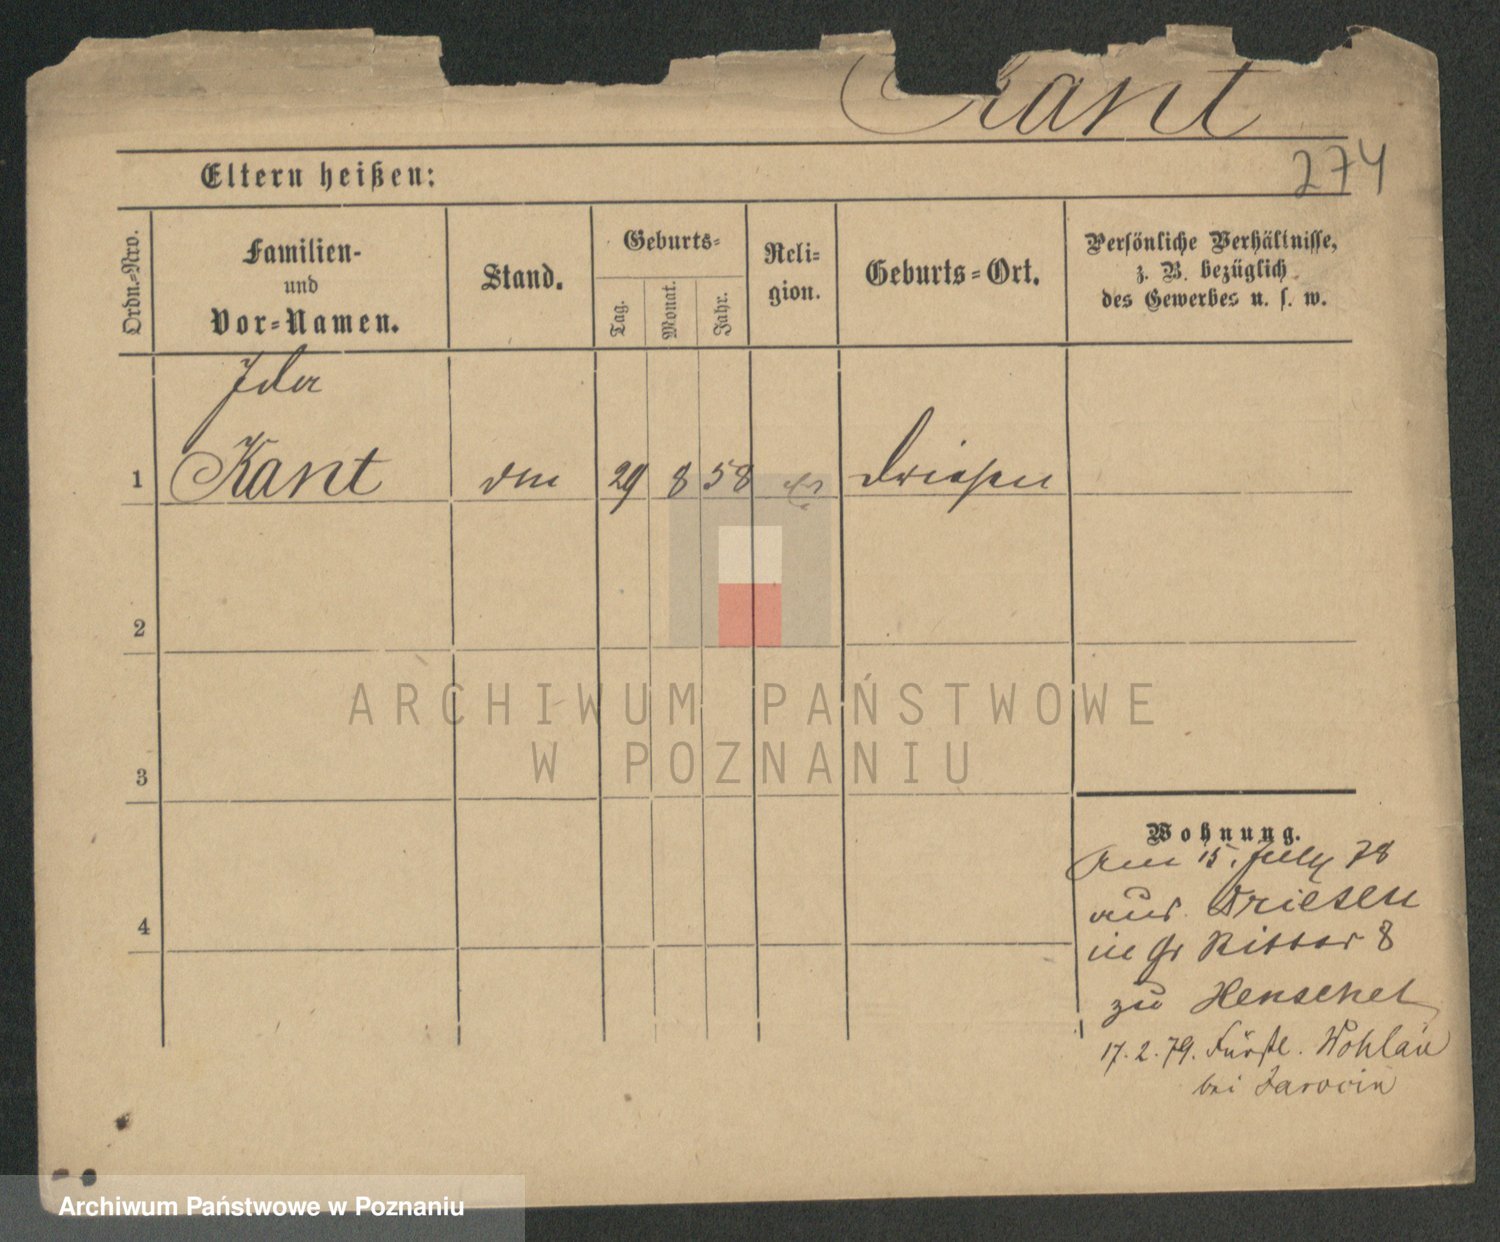 Kant
274
Eltern heißen:
Ordn.-Nro.
Familien-
und
Vor-Namen.
Stand.
Geburts-
Tag.
Monat.
Jahr.
Reli-
gion.
Geburts-Ort.
Persönliche Verhältnisse,
z. B. bezüglich
des Gewerbes u. s. w.
Ida
1 Kant 29 8 58 Driesen
2
3
4
Wohnung.
Am 15. July 78
aus Driesen
in Gr Ritter 8
zu Henschel
17. 2. 79. Fürstl. Wohlau
bei Jarocin
ARCHIWUM PAŃSTWOWE
W POZNANIU
Archiwum Państwowe w Poznaniu